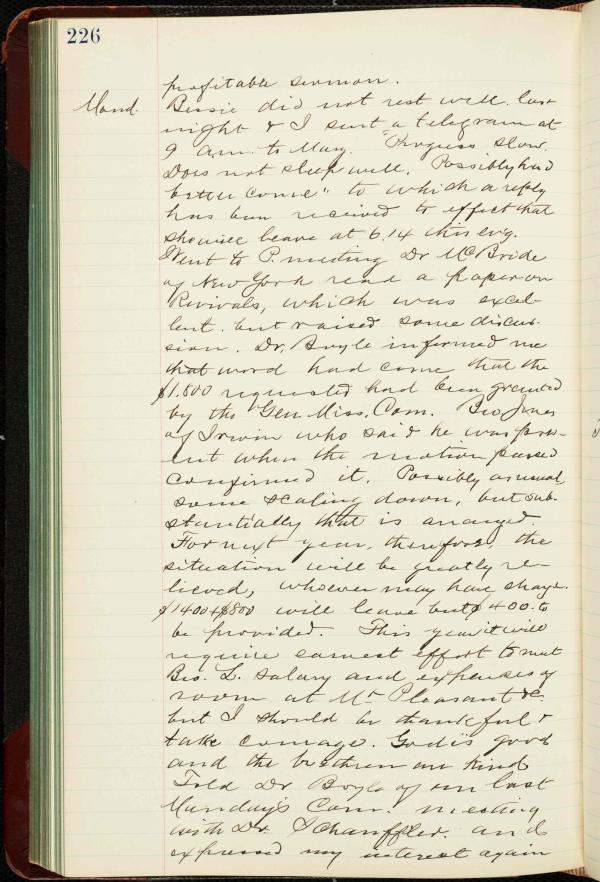 226
profitable sermon.
Mond. Bessie did not rest well last
night & I sent a telegram at
9 a.m. to Mary. "Progress slow.
Does not sleep well. Possibly had
better come" to which a reply
has been received to effect that
she will leave at 6.14 this evg.
Went to P. meeting Dr McBride
of New York read a paper on
Revivals, which was excel-
lent. but raised some discus-
sion. Dr. Boyle informed me
that word had come that the
$1.800 requested had been granted
by the Gen. Miss. Com. Bro Jones
of Irwin who said he was pres-
ent when the motion passed
confirmed it. Possibly as usual
some scaling down, but sub-
stantially that is arranged.
For next year, therefore, the
situation will be greatly re-
lieved, whoever may have charge.
$1400 + $800 will leave but $400. to
be provided. This year it will
require earnest effort to meet
Bro. L. salary and expenses of
room at Mt Pleasant &c.
but I should be thankful &
take courage. God is good
and the brethren are kind
Told Dr Boyle of our last
Munday's Com. meeting
with Dr. Schauffler. and
expressed my interest again